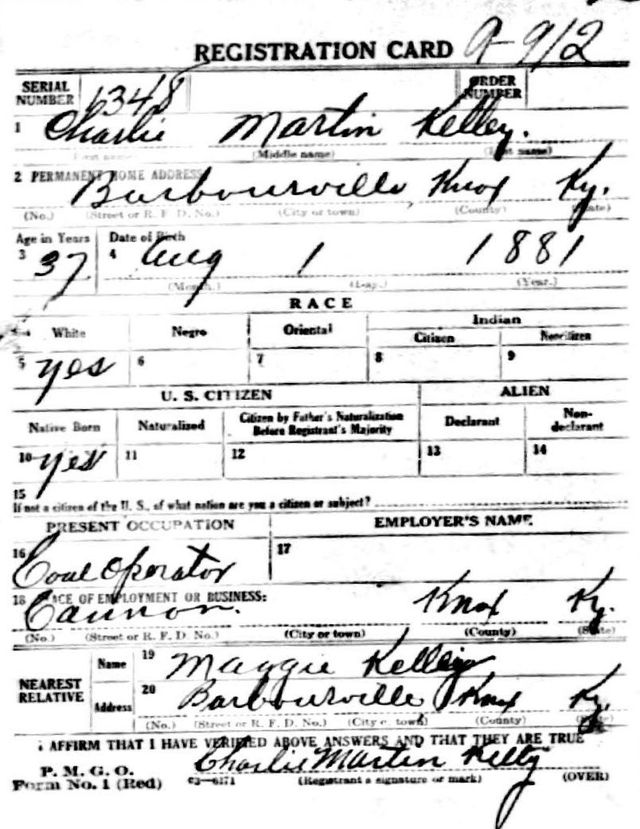 REGISTRATION CARD 9-912
SERIAL NUMBER 1348 ORDER NUMBER
1 Charlie Martin Kelley.
(First name) (Middle name) (Last name)
2 PERMANENT HOME ADDRESS
Barbourville, Knox Ky.
(No.) (Street or R. F. D. No.) (City or town) (County) (State)
Age in Years Date of Birth
3 37 4 Aug 1 1881
(Month.) (Day.) (Year.)
RACE
White Negro Oriental Indian
Citizen Noncitizen
5 yes 6 7 8 9
U. S. CITIZEN ALIEN
Native Born Naturalized Citizen by Father's Naturalization Before Registrant's Majority Declarant Non-declarant
10 yes 11 12 13 14
15
If not a citizen of the U. S., of what nation are you a citizen or subject?
PRESENT OCCUPATION EMPLOYER'S NAME
16 Coal Operator 17
18 PLACE OF EMPLOYMENT OR BUSINESS:
Cannon. Knox Ky.
(No.) (Street or R. F. D. No.) (City or town) (County) (State)
NEAREST RELATIVE Name 19 Maggie Kelley
Address 20 Barbourville Knox Ky.
(No.) (Street or R. F. D. No.) (City or town) (County) (State)
I AFFIRM THAT I HAVE VERIFIED ABOVE ANSWERS AND THAT THEY ARE TRUE
P. M. G. O. Charlie Martin Kelly
Form No. 1 (Red) 03—6171 (Registrant's signature or mark) (OVER)